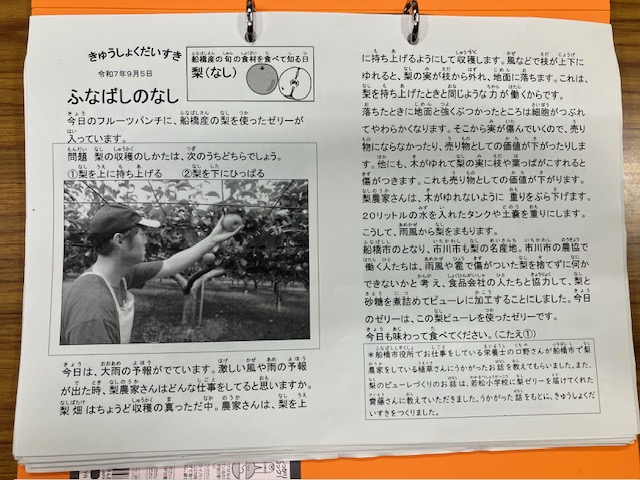 きゅうしょくだいすき
令和7年9月5日
船橋産の旬の食材を食べて知る日
梨(なし)
ふなばしのなし
今日のフルーツパンチに、船橋産の梨を使ったゼリーが
入っています。
問題 梨の収穫のしかたは、次のうちどちらでしょう。
①梨を上に持ち上げる ②梨を下にひっぱる
今日は、大雨の予報がでています。激しい風や雨の予報
が出た時、梨農家さんはどんな仕事をしてると思いますか。
梨畑はちょうど収穫の真っただ中。農家さんは、梨を上
に持ち上げるようにして収穫します。風などで枝が上下に
ゆれると、梨の実が枝から外れ、地面に落ちます。これは、
梨を持ち上げたときと同じような力が働くからです。
落ちたときに地面と強くぶつかったところは細胞がつぶれ
てやわらかくなります。そこから実が傷んでいくので、売り
物にならなかったり、売り物としての価値が下がったりしま
す。他にも、木がゆれて梨の実に枝や葉っぱがこすれると
傷がつきます。これも売り物としての価値が下がります。
梨農家さんは、木がゆれないように重りをぶら下げます。
20リットルの水を入れたタンクや土嚢を重りにします。
こうして、雨風から梨をまもります。
船橋市のとなり、市川市も梨の名産地。市川市の農協で
働く人たちは、雨風や雹で傷がついた梨を捨てずに何か
できないかと考え、食品会社の人たちと協力して、梨と
砂糖を煮詰めてピューレに加工することにしました。今日
のゼリーは、この梨ピューレを使ったゼリーです。
今日も味わって食べてください。(こたえ①)
＊船橋市役所でお仕事をしている栄養士の口野さんが船橋市で梨
農家をしている植草さんにうかがったお話を教えてもらいました。また、
梨のピューレづくりのお話は、若松小学校に梨ゼリーを届けてくれた
齋藤さんに教えていただきました。うかがった話をもとに、きゅうしょくだ
いすきをつくりました。